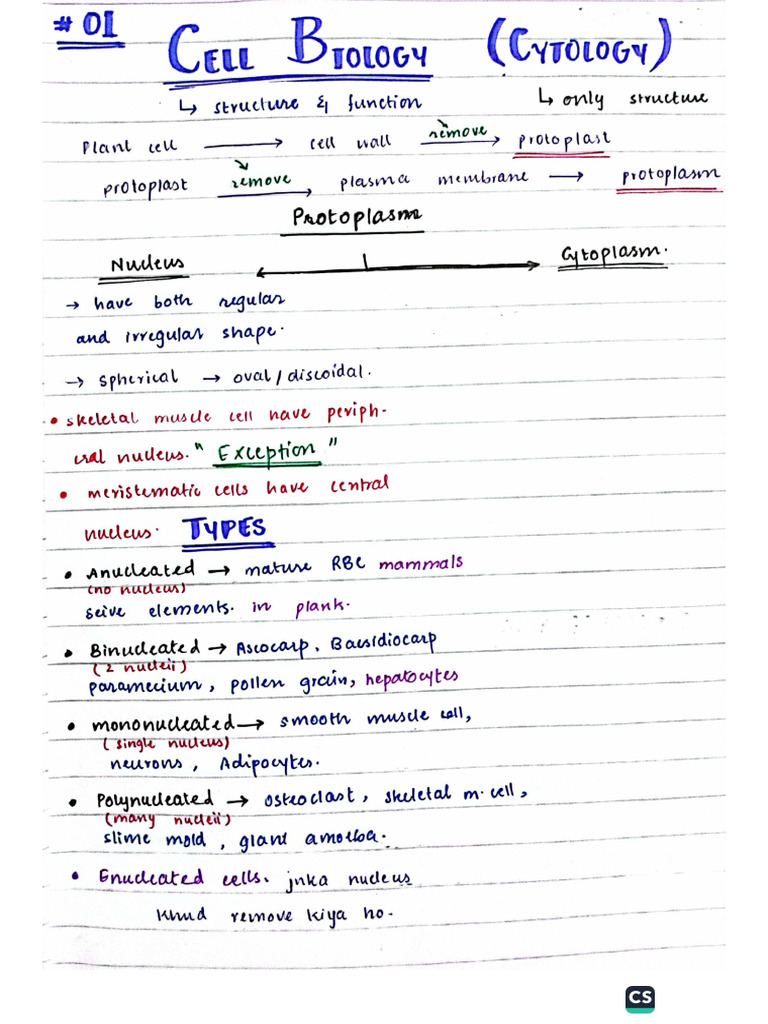 # 01
CELL BIOLOGY (CYTOLOGY)
↳ structure & function ↳ only structure
Plant cell → cell wall remove → protoplast
protoplast remove → plasma membrane → protoplasm
Protoplasm
Nucleus Cytoplasm.
→ have both regular
and irregular shape.
→ spherical → oval/discoidal.
• skeletal muscle cell have periph-
eral nucleus. "Exception"
• meristematic cells have central
nucleus. TYPES
• Anucleated → mature RBC mammals
(no nucleus)
seive elements. in plank.
• Binucleated → Ascocarp, Baesidiocarp
(2 nucleii)
paramecium, pollen grain, hepatocytes
• mononucleated → smooth muscle cell,
(single nucleus)
neurons, Adipocytes.
• Polynucleated → osteoclast, skeletal m. cell,
(many nucleii)
slime mold, giant amoeba.
• Enucleated cells. jnka nucleus
khud remove kiya ho.
CS